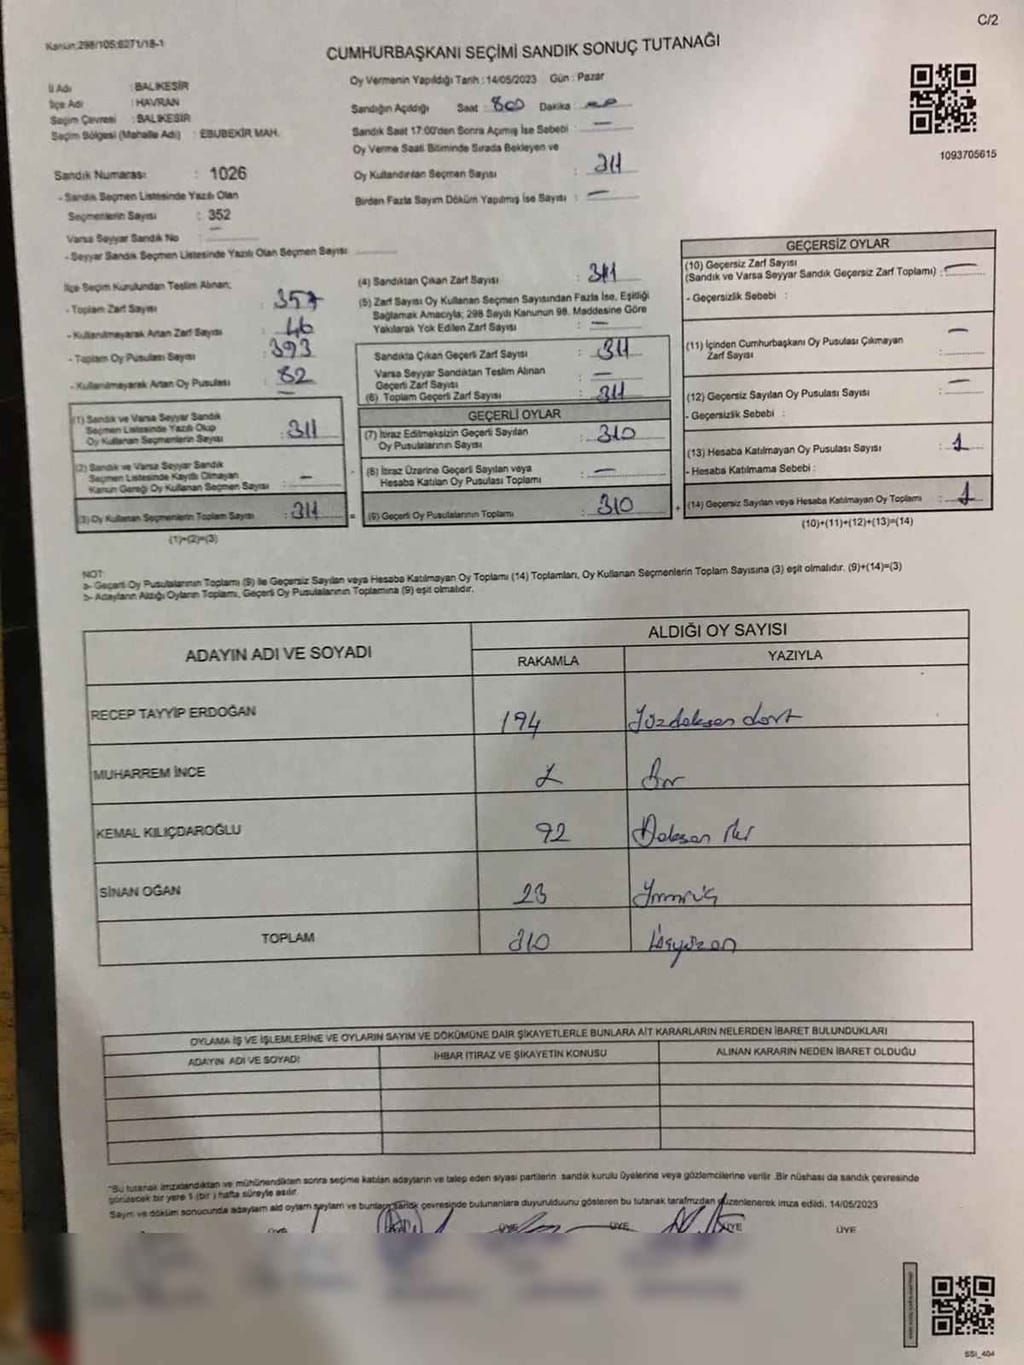 C/2
Kanun:298/105;6271/18-1
CUMHURBAŞKANI SEÇİMİ SANDIK SONUÇ TUTANAĞI
1093705615
İl Adı : BALIKESİR
İlçe Adı : HAVRAN
Seçim Çevresi : BALIKESİR
Seçim Bölgesi (Mahalle Adı) : EBUBEKİR MAH.
Sandık Numarası : 1026
- Sandık Seçmen Listesinde Yazılı Olan
Seçmenlerin Sayısı : 352
Varsa Seyyar Sandık No : —
- Seyyar Sandık Seçmen Listesinde Yazılı Olan Seçmen Sayısı
Oy Vermenin Yapıldığı Tarih : 14/05/2023 Gün : Pazar
Sandığın Açıldığı Saat : 800 Dakika :
Sandık Saat 17:00'den Sonra Açılmış İse Sebebi : —
Oy Verme Saati Bitiminde Sırada Bekleyen ve
Oy Kullandırılan Seçmen Sayısı : 311
Birden Fazla Sayım Döküm Yapılmış İse Sayısı : —
İlçe Seçim Kurulundan Teslim Alınan;
- Toplam Zarf Sayısı : 357
- Kullanılmayarak Artan Zarf Sayısı : 46
- Toplam Oy Pusulası Sayısı : 393
- Kullanılmayarak Artan Oy Pusulası : 82
(1) Sandık ve Varsa Seyyar Sandık
Seçmen Listesinde Yazılı Olup
Oy Kullanan Seçmenlerin Sayısı : 311
(2) Sandık ve Varsa Seyyar Sandık
Seçmen Listesinde Kayıtlı Olmayan
Kanun Gereği Oy Kullanan Seçmen Sayısı : —
(3) Oy Kullanan Seçmenlerin Toplam Sayısı : 311
(1)+(2)=(3)
(4) Sandıktan Çıkan Zarf Sayısı : 311
(5) Zarf Sayısı Oy Kullanan Seçmen Sayısından Fazla İse, Eşitliği
Sağlamak Amacıyla; 298 Sayılı Kanunun 98. Maddesine Göre
Yakılarak Yok Edilen Zarf Sayısı : —
Sandıkta Çıkan Geçerli Zarf Sayısı : 311
Varsa Seyyar Sandıktan Teslim Alınan
Geçerli Zarf Sayısı : —
(6) Toplam Geçerli Zarf Sayısı : 311
GEÇERLİ OYLAR
(7) İtiraz Edilmeksizin Geçerli Sayılan
Oy Pusulalarının Sayısı : 310
(8) İtiraz Üzerine Geçerli Sayılan veya
Hesaba Katılan Oy Pusulası Toplamı : —
= (9) Geçerli Oy Pusulalarının Toplamı : 310
GEÇERSİZ OYLAR
(10) Geçersiz Zarf Sayısı
(Sandık ve Varsa Seyyar Sandık Geçersiz Zarf Toplamı) : —
- Geçersizlik Sebebi :
(11) İçinden Cumhurbaşkanı Oy Pusulası Çıkmayan
Zarf Sayısı : —
(12) Geçersiz Sayılan Oy Pusulası Sayısı : —
- Geçersizlik Sebebi :
(13) Hesaba Katılmayan Oy Pusulası Sayısı : 1
- Hesaba Katılmama Sebebi :
+ (14) Geçersiz Sayılan veya Hesaba Katılmayan Oy Toplamı : 1
(10)+(11)+(12)+(13)=(14)
NOT:
a- Geçerli Oy Pusulalarının Toplamı (9) ile Geçersiz Sayılan veya Hesaba Katılmayan Oy Toplamı (14) Toplamları, Oy Kullanan Seçmenlerin Toplam Sayısına (3) eşit olmalıdır. (9)+(14)=(3)
b- Adayların Aldığı Oyların Toplamı, Geçerli Oy Pusulalarının Toplamına (9) eşit olmalıdır.
ADAYIN ADI VE SOYADI
ALDIĞI OY SAYISI
RAKAMLA YAZIYLA
RECEP TAYYİP ERDOĞAN 194 Yüzdoksan dört
MUHARREM İNCE 1 Bir
KEMAL KILIÇDAROĞLU 92 Doksan iki
SİNAN OĞAN 23 Yirmiüç
TOPLAM 310 Üçyüzon
OYLAMA İŞ VE İŞLEMLERİNE VE OYLARIN SAYIM VE DÖKÜMÜNE DAİR ŞİKAYETLERLE BUNLARA AİT KARARLARIN NELERDEN İBARET BULUNDUKLARI
ADAYIN ADI VE SOYADI İHBAR İTİRAZ VE ŞİKAYETİN KONUSU ALINAN KARARIN NEDEN İBARET OLDUĞU
"Bu tutanak imzalandıktan ve mühürlendikten sonra seçime katılan adayların ve talep eden siyasi partilerin sandık kurulu üyelerine veya gözlemcilerine verilir. Bir nüshası da sandık çevresinde
görülecek bir yere 1 (bir) hafta süreyle asılır.
Sayım ve döküm sonucunda adayların aldığı oyların sayıları ve bunları sandık çevresinde bulunanlara duyurulduğunu gösteren bu tutanak tarafımızdan düzenlenerek imza edildi. 14/05/2023
ÜYE ÜYE ÜYE ÜYE ÜYE
SSI_404